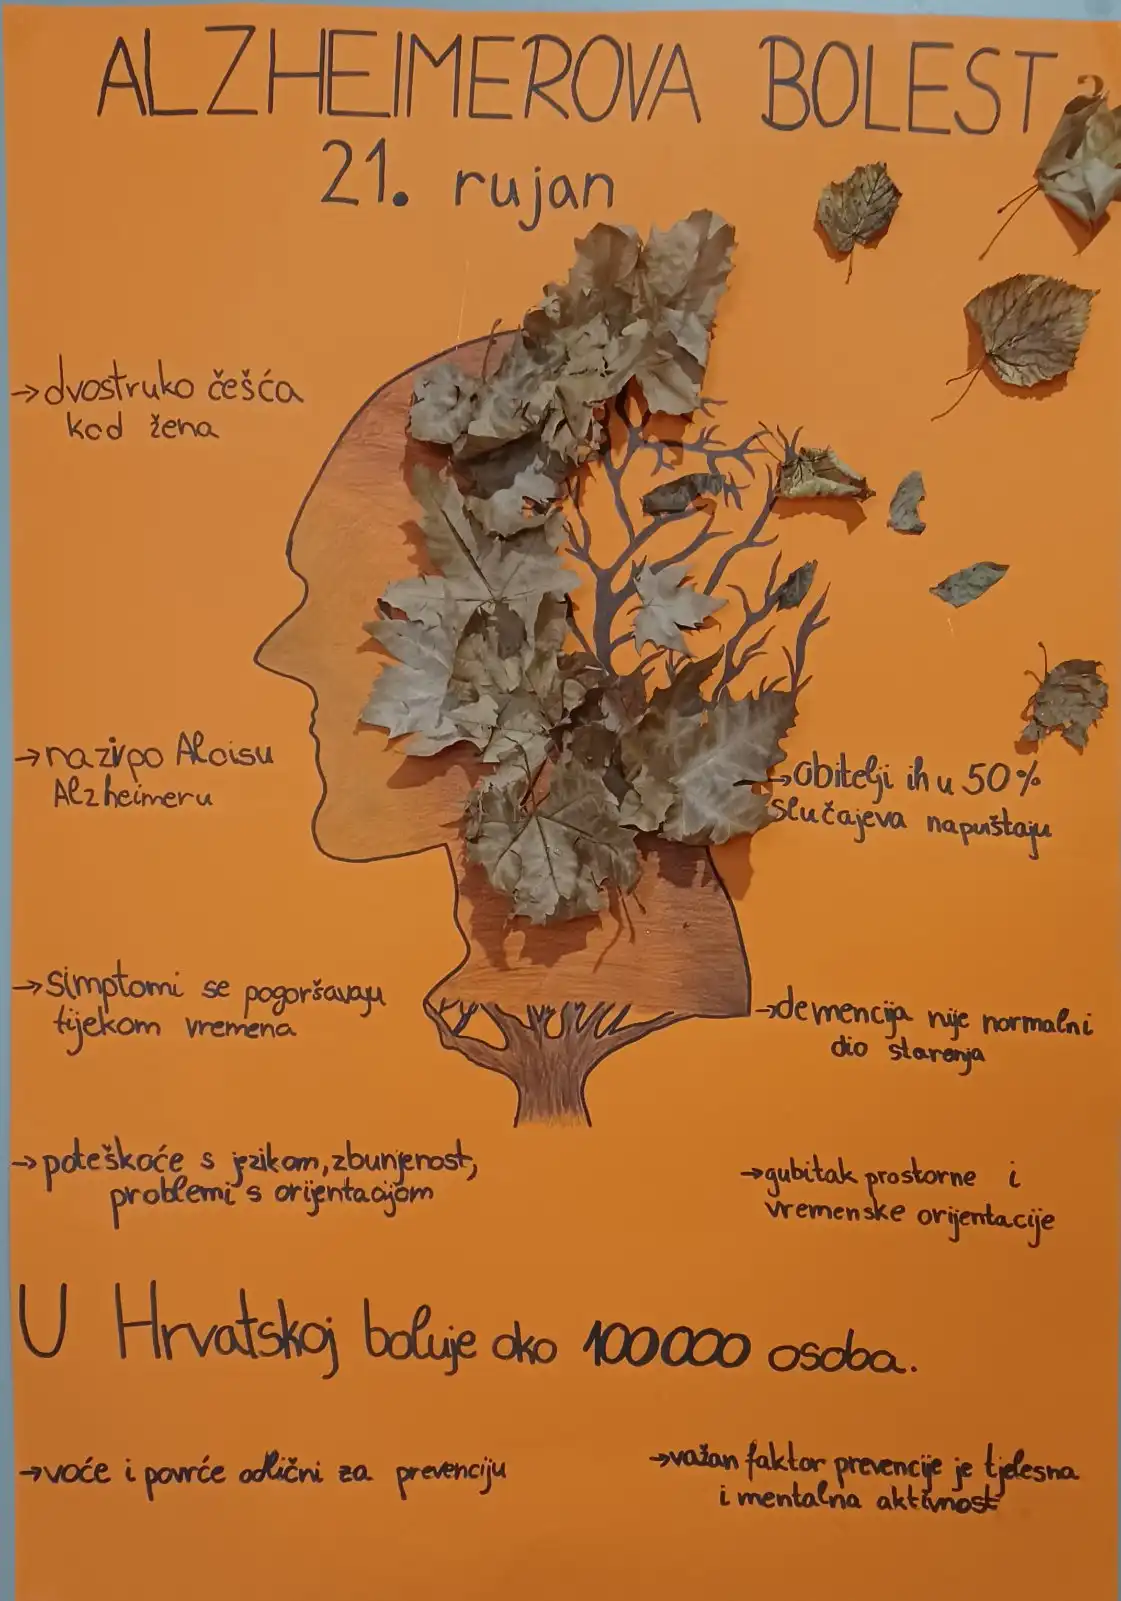 ALZHEIMEROVA BOLEST
21. rujan
→dvostruko češća
kod žena
→naziv po Aloisu
Alzheimeru
→Obitelji ih u 50%
slučajeva napuštaju
→simptomi se pogoršavaju
tijekom vremena
→demencija nije normalni
dio starenja
→poteškoće s jezikom, zbunjenost,
problemi s orijentacijom
→gubitak prostorne i
vremenske orijentacije
U Hrvatskoj boluje oko 100000 osoba.
→voće i povrće odlični za prevenciju
→važan faktor prevencije je tjelesna
i mentalna aktivnost